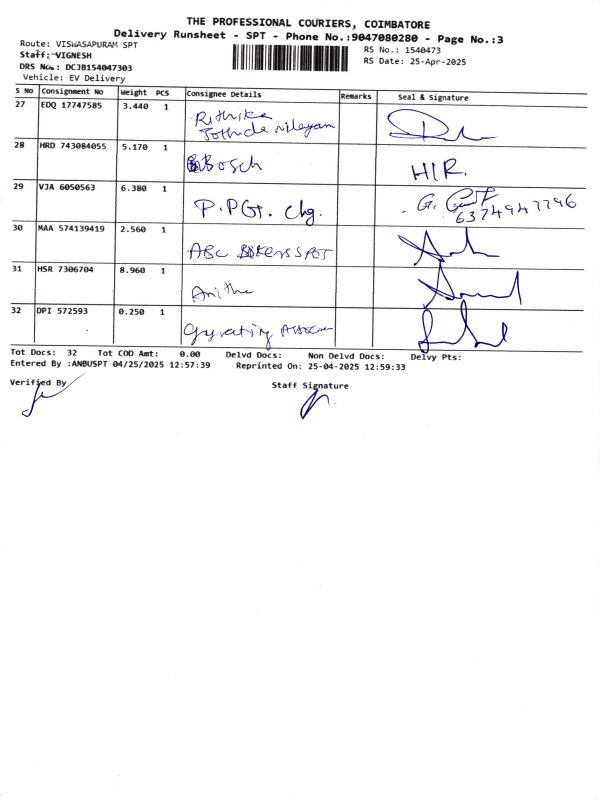 THE PROFESSIONAL COURIERS, COIMBATORE
Delivery Runsheet - SPT - Phone No.:9047080280 - Page No.:3
Route: VISWASAPURAM SPT
RS No.: 1540473
Staff: VIGNESH
RS Date: 25-Apr-2025
DRS No.: DCJB154047303
Vehicle: EV Delivery
S No Consignment No Weight PCS Consignee Details Remarks Seal & Signature
27 EDQ 17747585 3.440 1 Rithika
28 HRD 743084055 5.170 1 Bosch HIR.
29 VJA 6050563 6.380 1 P.PGT. chg. G.
6374947796
30 MAA 574139419 2.560 1 ABC
31 HSR 7306704 8.960 1 Anitha
32 DPI 572593 0.250 1
Tot Docs: 32 Tot COD Amt: 0.00 Delvd Docs: Non Delvd Docs: Delvy Pts:
Entered By :ANBUSPT 04/25/2025 12:57:39 Reprinted On: 25-04-2025 12:59:33
Verified By
Staff Signature